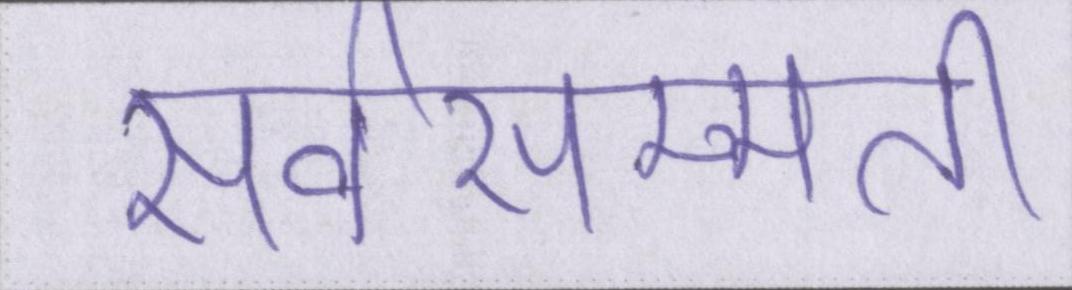 सर्वसम्मती